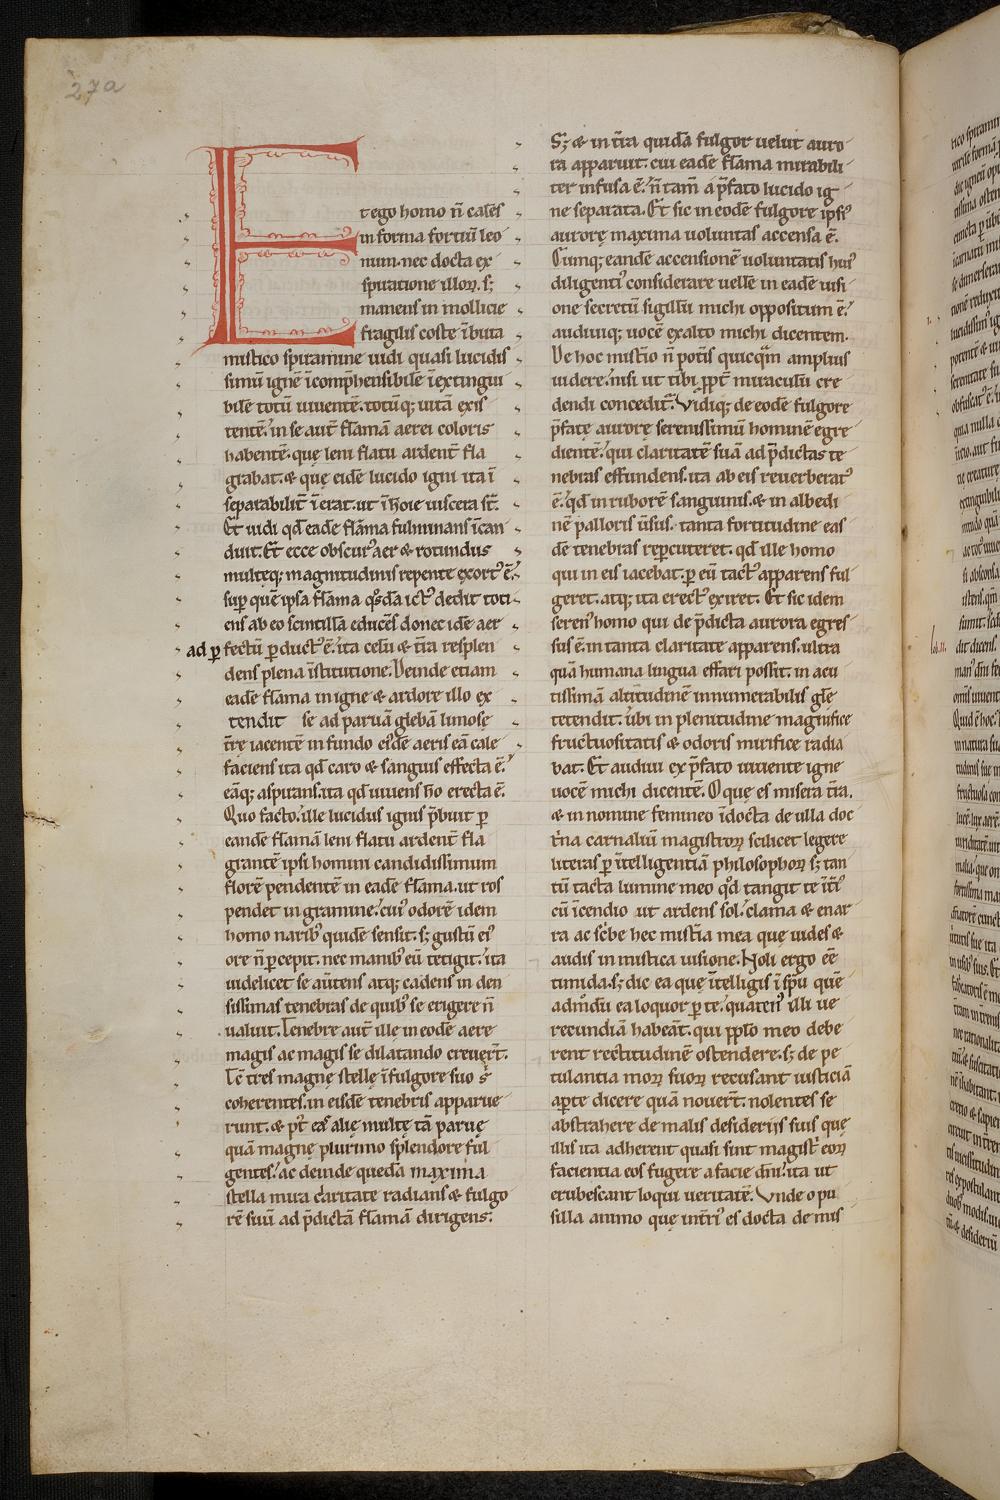 27a
Et ego homo n̄ calēs
in forma fortiū leo
num. nec docta ex
spiratione illoꝝ. sꝫ
manens in mollicie
fragilis coste ībuta
mistico spiramine uidi quasi lucidis
simū ignē īcomp̄hensibilē īextingui
bilē totū uiuentē. totūqꝫ uitā exis
tentē. in se aut̄ flāmā aerei coloris
habentē. quę leni flatu ardent̄ fla
grabat. & quę eidē lucido igni ita ī
separabilit̄ īerat. ut ī hoīe uiscera st̄.
Et uidi qd̄ eadē flāma fulminans īcan
duit. Et ecce obscurꝰ aer & rotundus
multęqꝫ magnitudinis repente exortꝰ ē.
sup̄ quē ipsa flāma qͦsdā ictꝰ dedit toti
ens ab eo scintillā educēs donec idē aer
ad ꝑfectū ꝑductꝰ ē. ita celū & t̄ra resplen
dens plena īstitutione. Deinde etiam
eadē flāma in igne & ardore illo ex
tendit se ad paruā glebā limosę
t̄re iacentē in fundo eiꝰdē aeris eā cale
faciens ita qd̄ caro & sanguis effecta ē.
eāqꝫ aspirans. ita qd̄ uiuens hō erecta ē.
Quo facto. ille lucidus ignis p̄buit ꝑ
eandē flāmā leni flatu ardent̄ fla
grantē ipsi homini candidissimum
florē pendentē in eadē flāma. ut ros
pendet in gramine. cuiꝰ odorē idem
homo naribꝰ quidē sensit. sꝫ gustū eiꝰ
ore n̄ ꝑcepit. nec manibꝰ eū tetigit. ita
uidelicet se aūtens atqꝫ cadens in den
sissimas tenebras de quibꝰ se erigere n̄
ualuit. Tenebre aut̄ ille in eodē aere
magis ac magis se dilatando creuer̄t.
Tc̄ tres magnę stellę ī fulgore suo s̄
coherentes. in eisdē tenebris apparue
runt. & p̄t eas alię multę tā paruę
quā magnę plurimo splendore ful
gentes. ac deinde quedā maxima
stella mira claritate radians & fulgo
rē suū ad p̄dictā flāmā dirigens.
Sꝫ & in t̄ra quidā fulgor uelut auro
ra apparuit. cui eadē flāma mirabili
ter infusa ē. n̄ tam̄ a p̄fato lucido ig
ne separata. Et sic in eodē fulgore ipsiꝰ
aurorę maxima uoluntas accensa ē.
Cumqꝫ eandē accensionē uoluntatis huiꝰ
diligentiꝰ considerare uellē in eadē uisi
one secretū sigillū michi oppositum ē.
audiuiqꝫ uocē exalto michi dicentem.
De hoc mist̄io n̄ potis quicqͣm amplius
uidere. nisi ut tibi ꝓpt̄ miraculū cre
dendi concedit̄. Vidiqꝫ de eodē fulgore
p̄fatę aurorę serenissimū hominē egre
dientē. qui claritatē suā ad p̄dictas te
nebras effundens. ita ab eis reuerberatꝰ
ē. qd̄ in ruborē sanguinis. & in albedi
nē palloris ūsus. tanta fortitudine eas
dē tenebras reꝑcuteret. qd̄ ille homo
qui in eis iacebat. ꝑ eū tactꝰ apparens ful
geret. atqꝫ ita erectꝰ exiret. Et sic idem
serenꝰ homo qui de p̄dicta aurora egres
sus ē. in tanta claritate apparens. ultra
quā humana lingua effari possit. in acu
tissimā altitudinē innumerabilis gl̄e
tetendit. ubi in plenitudine magnificę
fructuositatis & odoris mirifice radia
bat. Et audiui ex p̄fato uiuente igne
uocē michi dicentē. O que es misera t̄ra.
& in nomine femineo īdocta de ulla doc
t̄na carnaliū magistroꝝ scilicet legere
literas ꝑ ītelligentiā philosophoꝝ sꝫ tan
tū tacta lumine meo qͦd tangit te
cū īcendio ut ardens sol. clama & enar
ra ac sc̄be hec mist̄ia mea quę uides &
audis in mistica uisione. Noli ergo eē
timida. sꝫ dic ea quę ītelligis ī sp̄u quē
admͦdū ea loquor ꝑ te. quatenꝰ illi ue
recundiā habeāt. qui ꝓplo meo debe
rent rectitudinē ostendere. sꝫ de pe
tulantia moꝝ suoꝝ recusant iusticiā
aꝑte dicere quā nouer̄t. nolentes se
abstrahere de malis desideriis suis quę
illis ita adherent quasi sint magistri eoꝝ
facientia eos fugere a facie dn̄i. ita ut
erubescant loqui ueritatē. Vnde o pu
silla animo quę int̄riꝰ es docta de mis